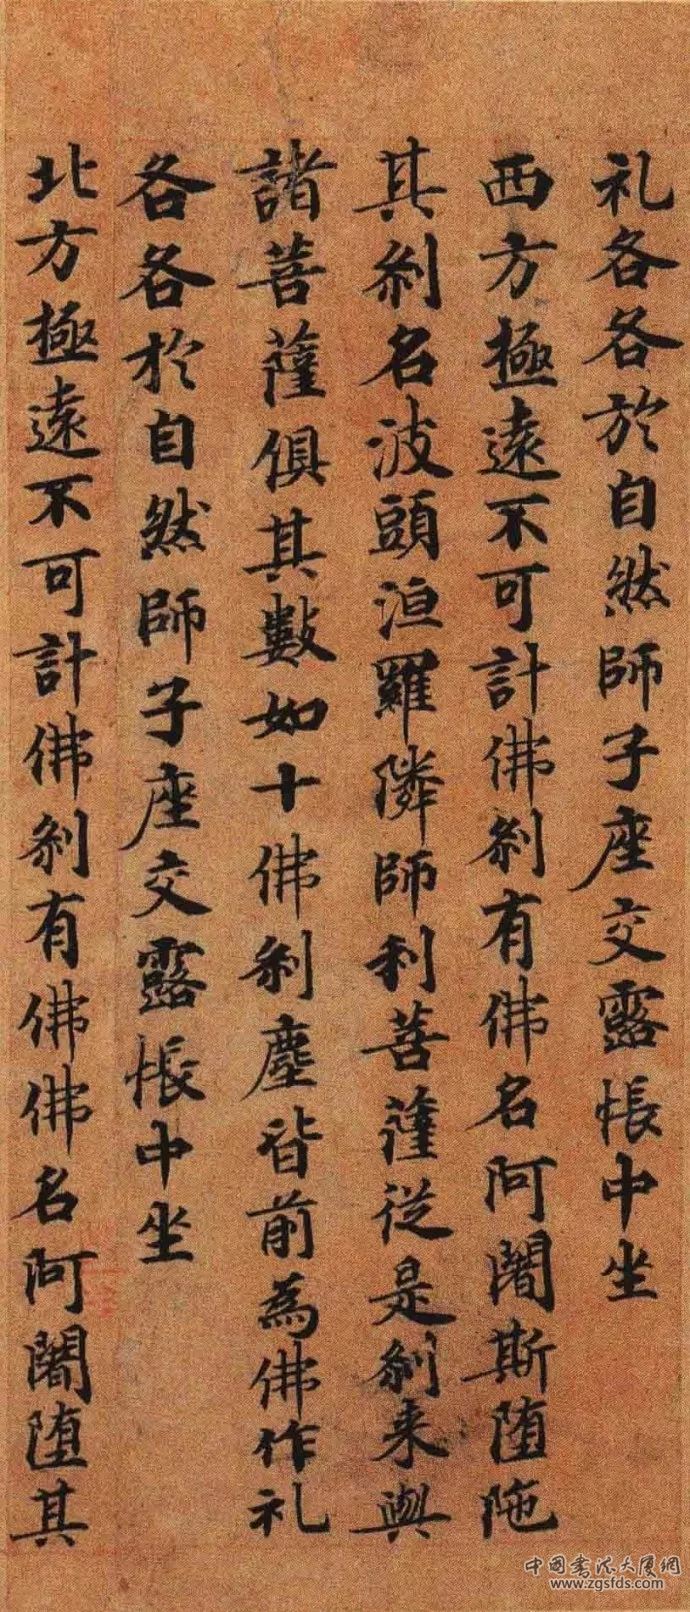 礼各各於自然師子座交露帳中坐
西方極遠不可計佛刹有佛名阿闍斯堕陁
其刹名波頭洹羅隣師利菩薩從是刹来與
諸菩薩俱其數如十佛刹塵皆前為佛作礼
各各於自然師子座交露帳中坐
北方極遠不可計佛刹有佛佛名阿闍堕其
中國书法大厦網
www.zgsfds.com